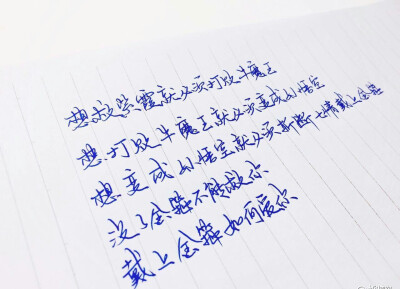 想救紫霞就必须打败牛魔王
想打败牛魔王就必须变成孙悟空
想变成孙悟空就必须斩断七情戴上金箍
没了金箍不能救你
戴上金箍如何爱你